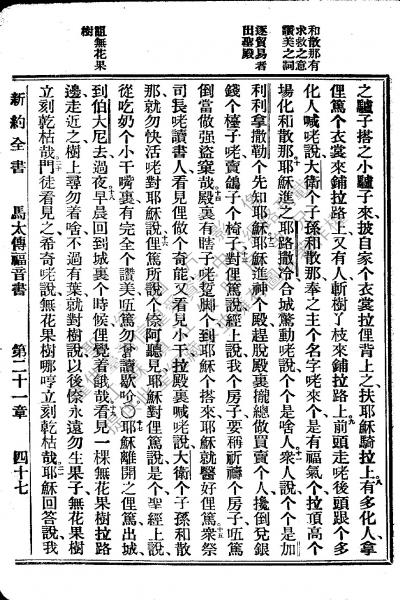 和散那有
求救之意
讚美之詞
逐貿易者
出聖殿
詛無花果
樹
之驢子搭之小驢子來披自家个衣裳拉俚背上之扶耶穌騎拉上有多化人拿
俚篤个衣裳來鋪拉路上又有人斬樹丫枝來鋪拉路上前頭走咾後頭跟个多
化人喊咾說大衛个子孫和散那奉之主个名字咾來个是有福氣个拉頂高个
場化和散那耶穌進之耶路撒冷合城驚動咾說个个是啥人衆人說个个是加
利利拿撒勒个先知耶穌耶穌進神个殿趕脫殿裏攏總做買賣个人攙倒兌銀
錢个檯子咾賣鴿子个椅子對俚篤說經上說我个房子要稱祈禱个房子㑚篤
倒當做强盜窠哉殿裏有瞎子咾蹺脚个到耶穌个搭來耶穌就醫好俚篤衆祭
司長咾讀書人看見俚做个奇能又看見小干拉殿裏喊咾說大衛个子孫和散
那就勿快活咾對耶穌說俚篤所說个倷阿聽見耶穌對俚篤說是个聖經上說
從吃奶个小干嘴裏有完全个讚美㑚篤勿曾讀歇吤〇耶穌離開之俚篤出城
到伯大尼去過夜早晨回到城裏个時候俚覺着餓哉看見一棵無花果樹拉路
邊走近之樹上尋勿着啥不過有葉就對樹說以後倷永遠勿生果子無花果樹
立刻乾枯哉門徒看見之希奇咾說無花果樹哪哼立刻乾枯哉耶穌回答說我
新約全書 馬太傳福音書 第二十一章 四十七